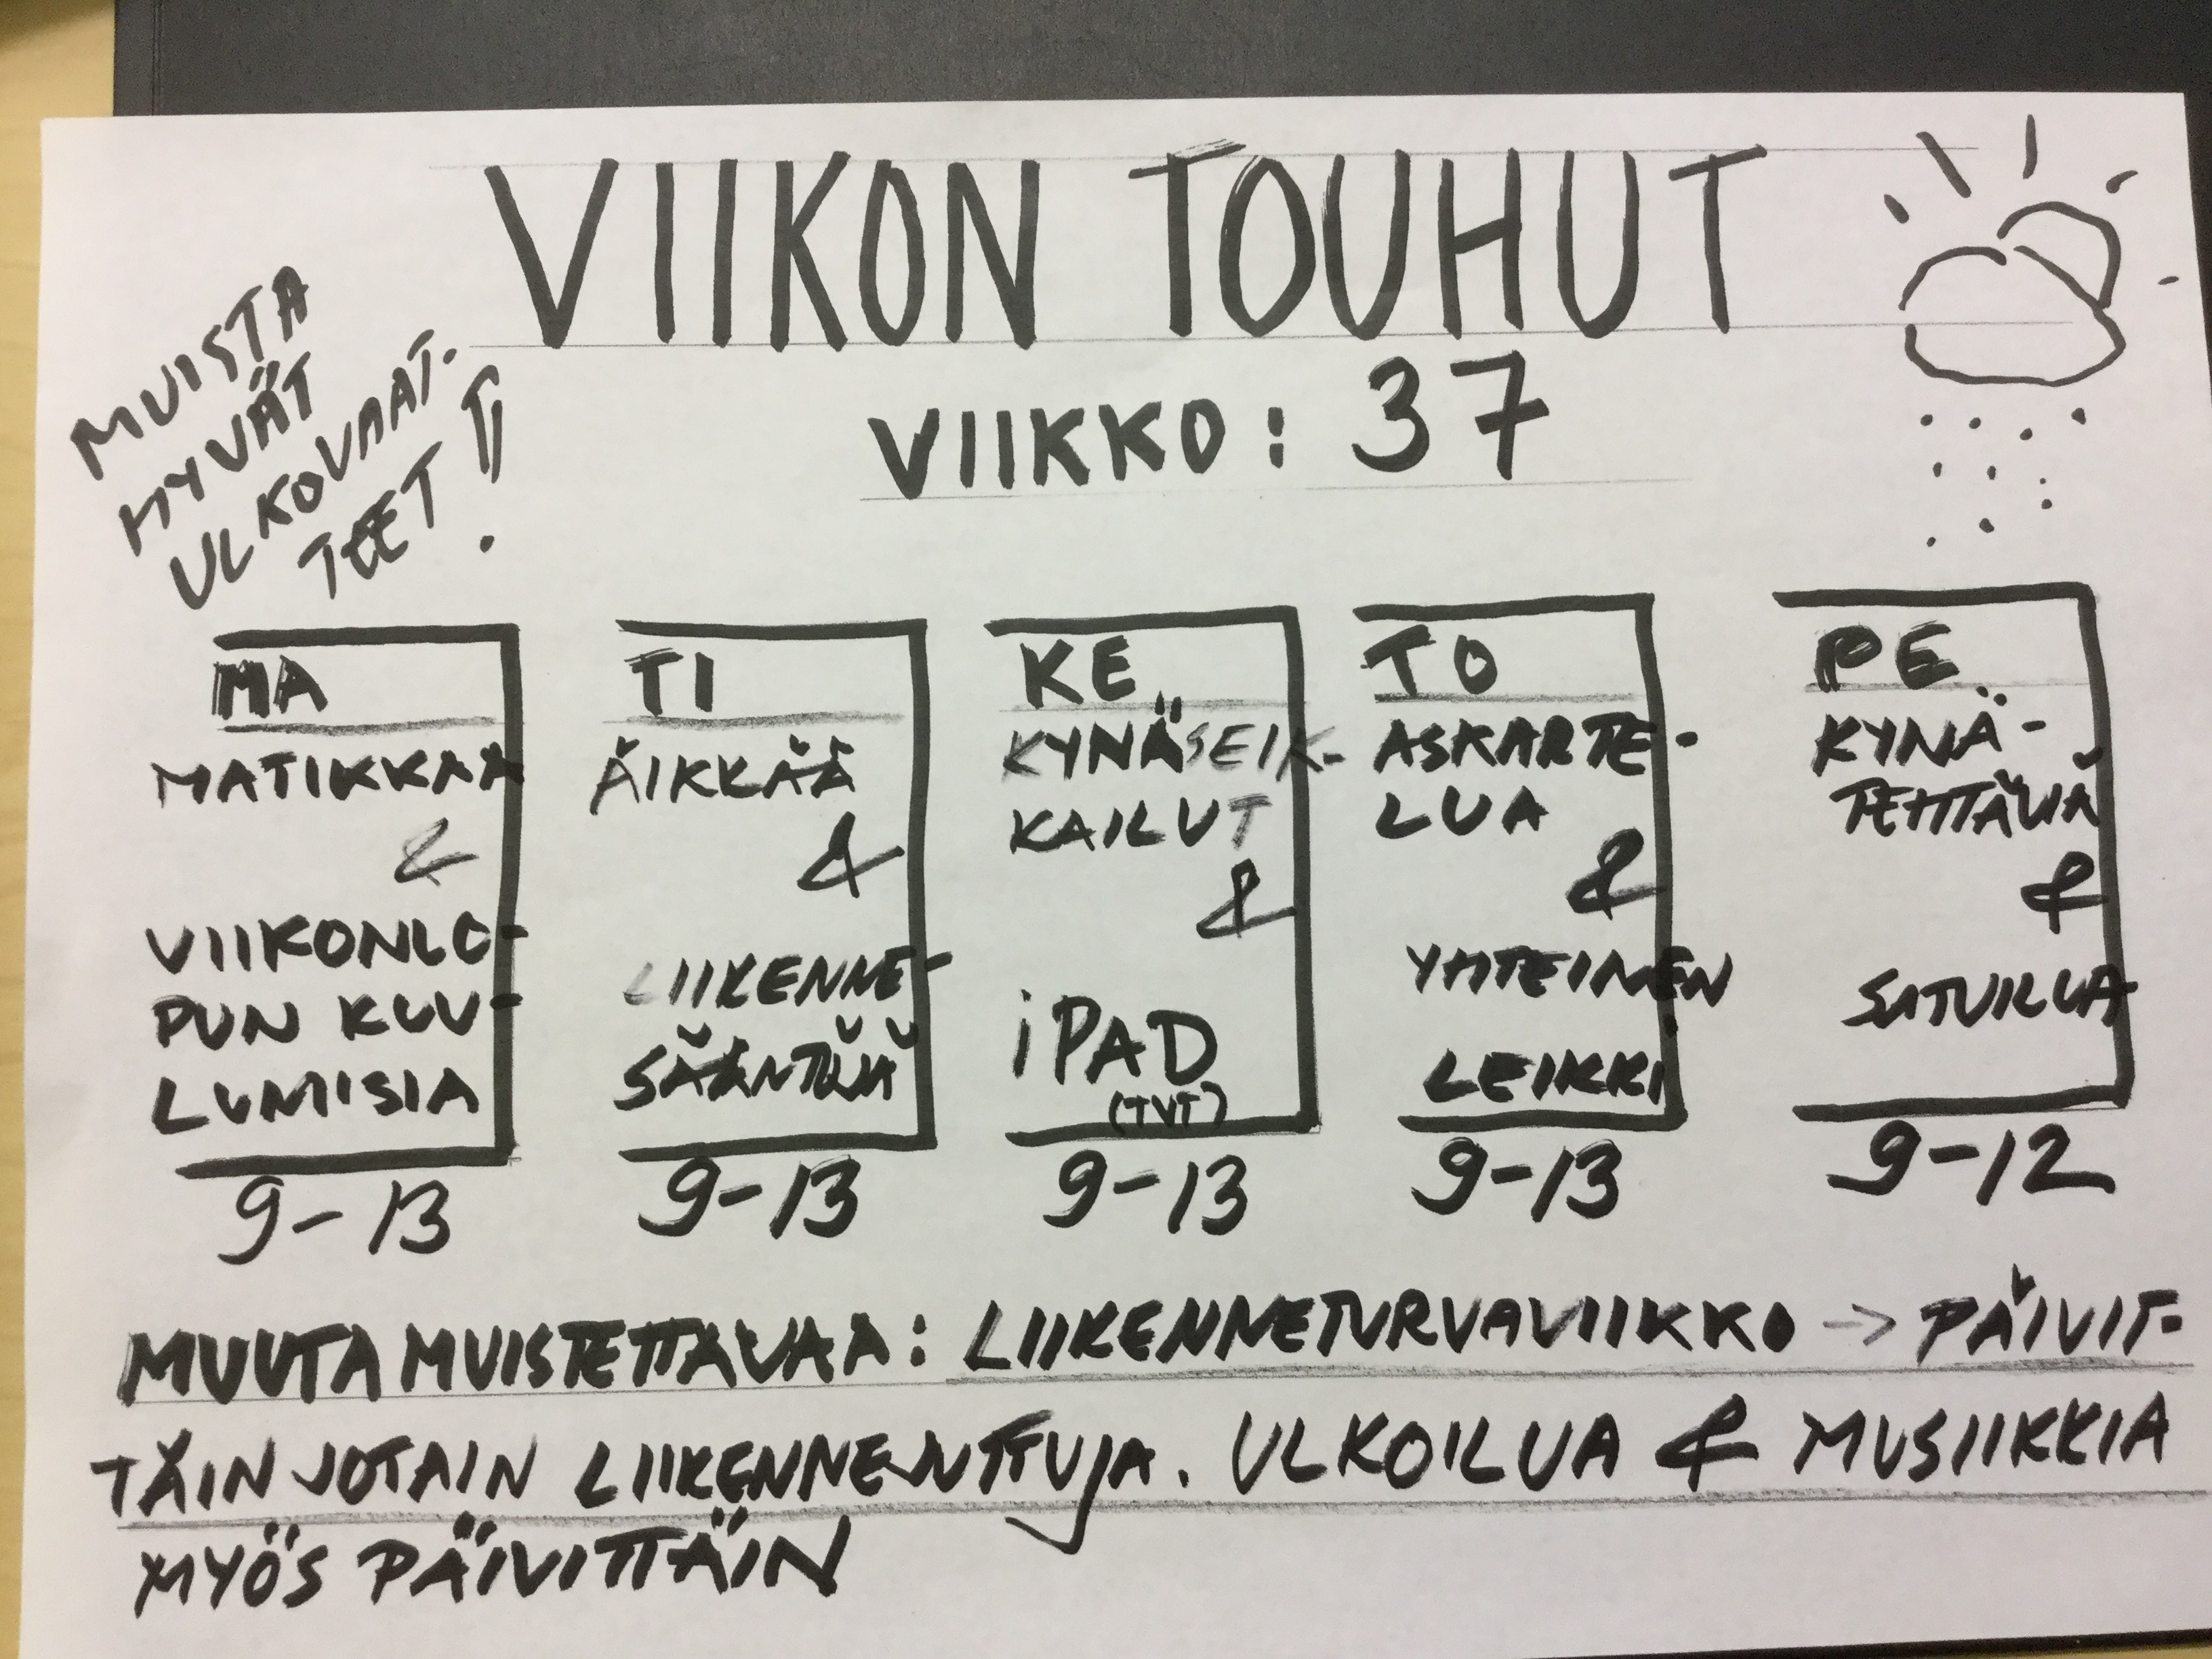 VIIKON TOUHUT
VIIKKO: 37
MUISTA
HYVÄT
ULKOVAAT-
TEET!
MA
MATIKKAA
&
VIIKONLO-
PUN KUU-
LUMISIA
9-13
TI
ÄIKKÄÄ
&
LIIKENNE-
SÄÄNTÖJÄ
9-13
KE
KYNÄSEIK-
KAILUT
&
iPAD
(TVT)
9-13
TO
ASKARTE-
LUA
&
YHTEINEN
LEIKKI
9-13
PE
KYNÄ-
TEHTÄVIÄ
&
SATUILUA
9-12
MUUTA MUISTETTAVAA: LIIKENNETURVAVIIKKO → PÄIVIT-
TÄIN JOTAIN LIIKENNEJUTTUJA. ULKOILUA & MUSIIKKIA
MYÖS PÄIVITTÄIN